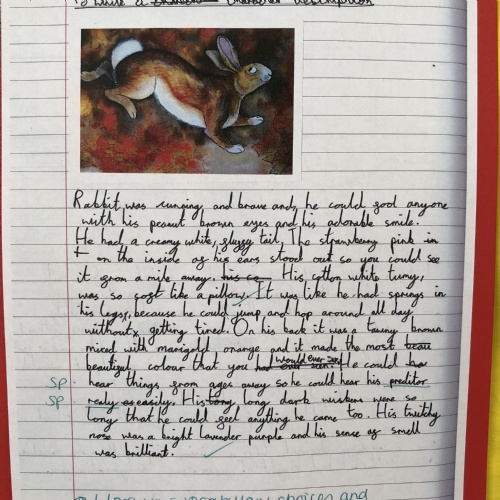 To write a character description
Rabbit was cunning, and brave and, he could fool anyone
with his peanut brown eyes and his adorable smile.
He had a creamy white, fluffy tail, The strawberry pink in
t on the inside of his ears stood out so you could see
it from a mile away. his co His cotton white tumy,
was so soft like a pillow. It was like he had springs in
his legs, because he could jump and hop around all day
without getting tired. On his back it was a tawny brown
mixed with marigold orange and it made the most beau
beautiful, colour that you had ever seen. would ever see He could hea
sp hear things from ages away so he could hear his preditor
sp realy as easily. His long long dark wiskers were so
long that he could feel anything he came too. His twitchy
nose was a bright lavender purple and his sense of smell
was brilliant.
vocabulary choices and